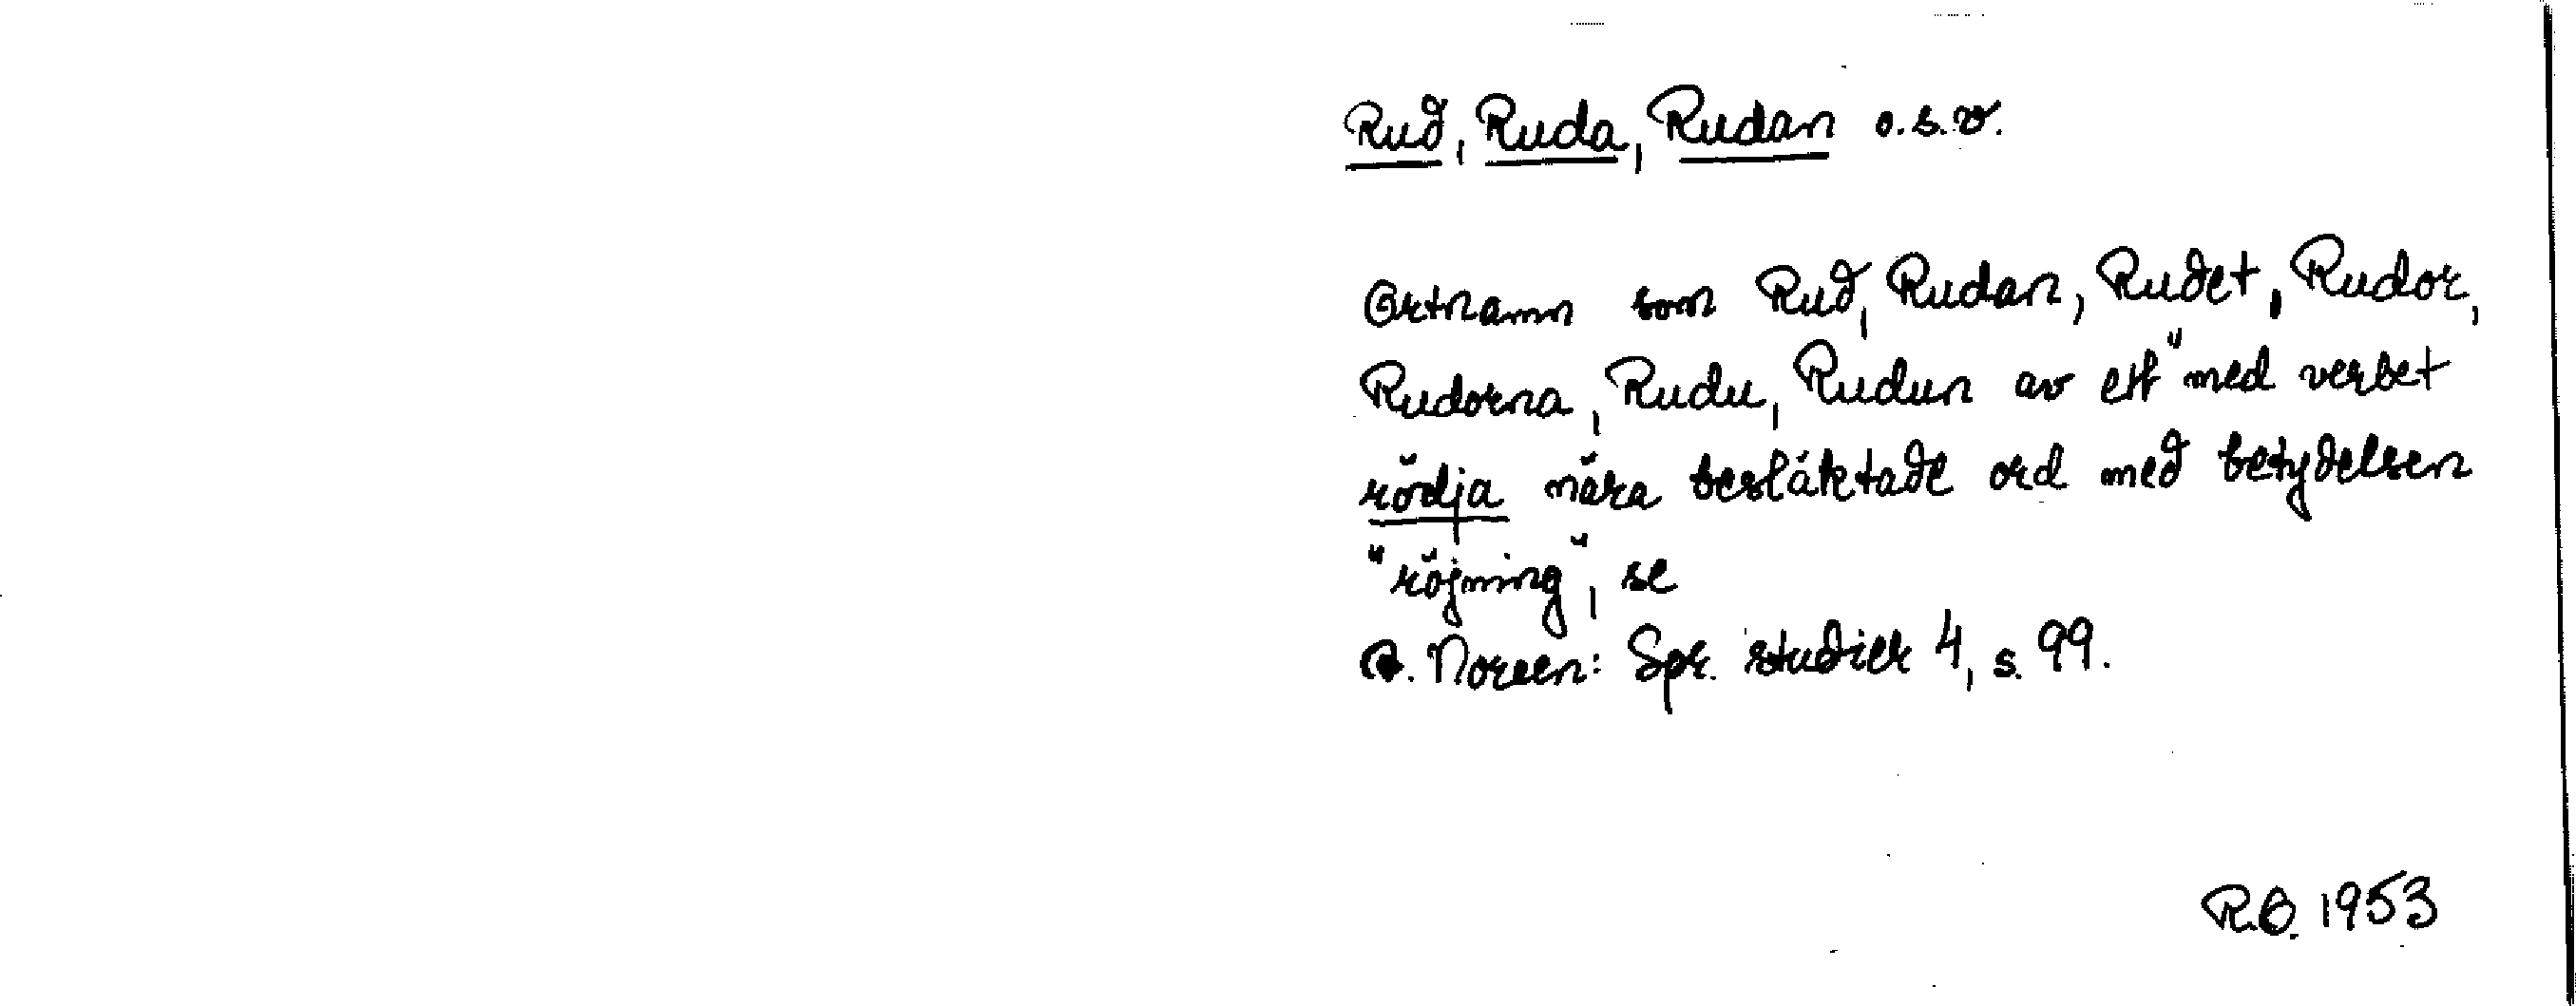 Rud, Ruda, Rudan o.s.v.
Ortnamn som Rud, Rudan, Rudet, Rudor,
Rudorna, Rudu, Rudun av ett "med verbet
rödja nära besläktade ord med betydelsen
"röjning", se
A. Noreen: Spr. studier 4, s. 99.
R.O. 1953